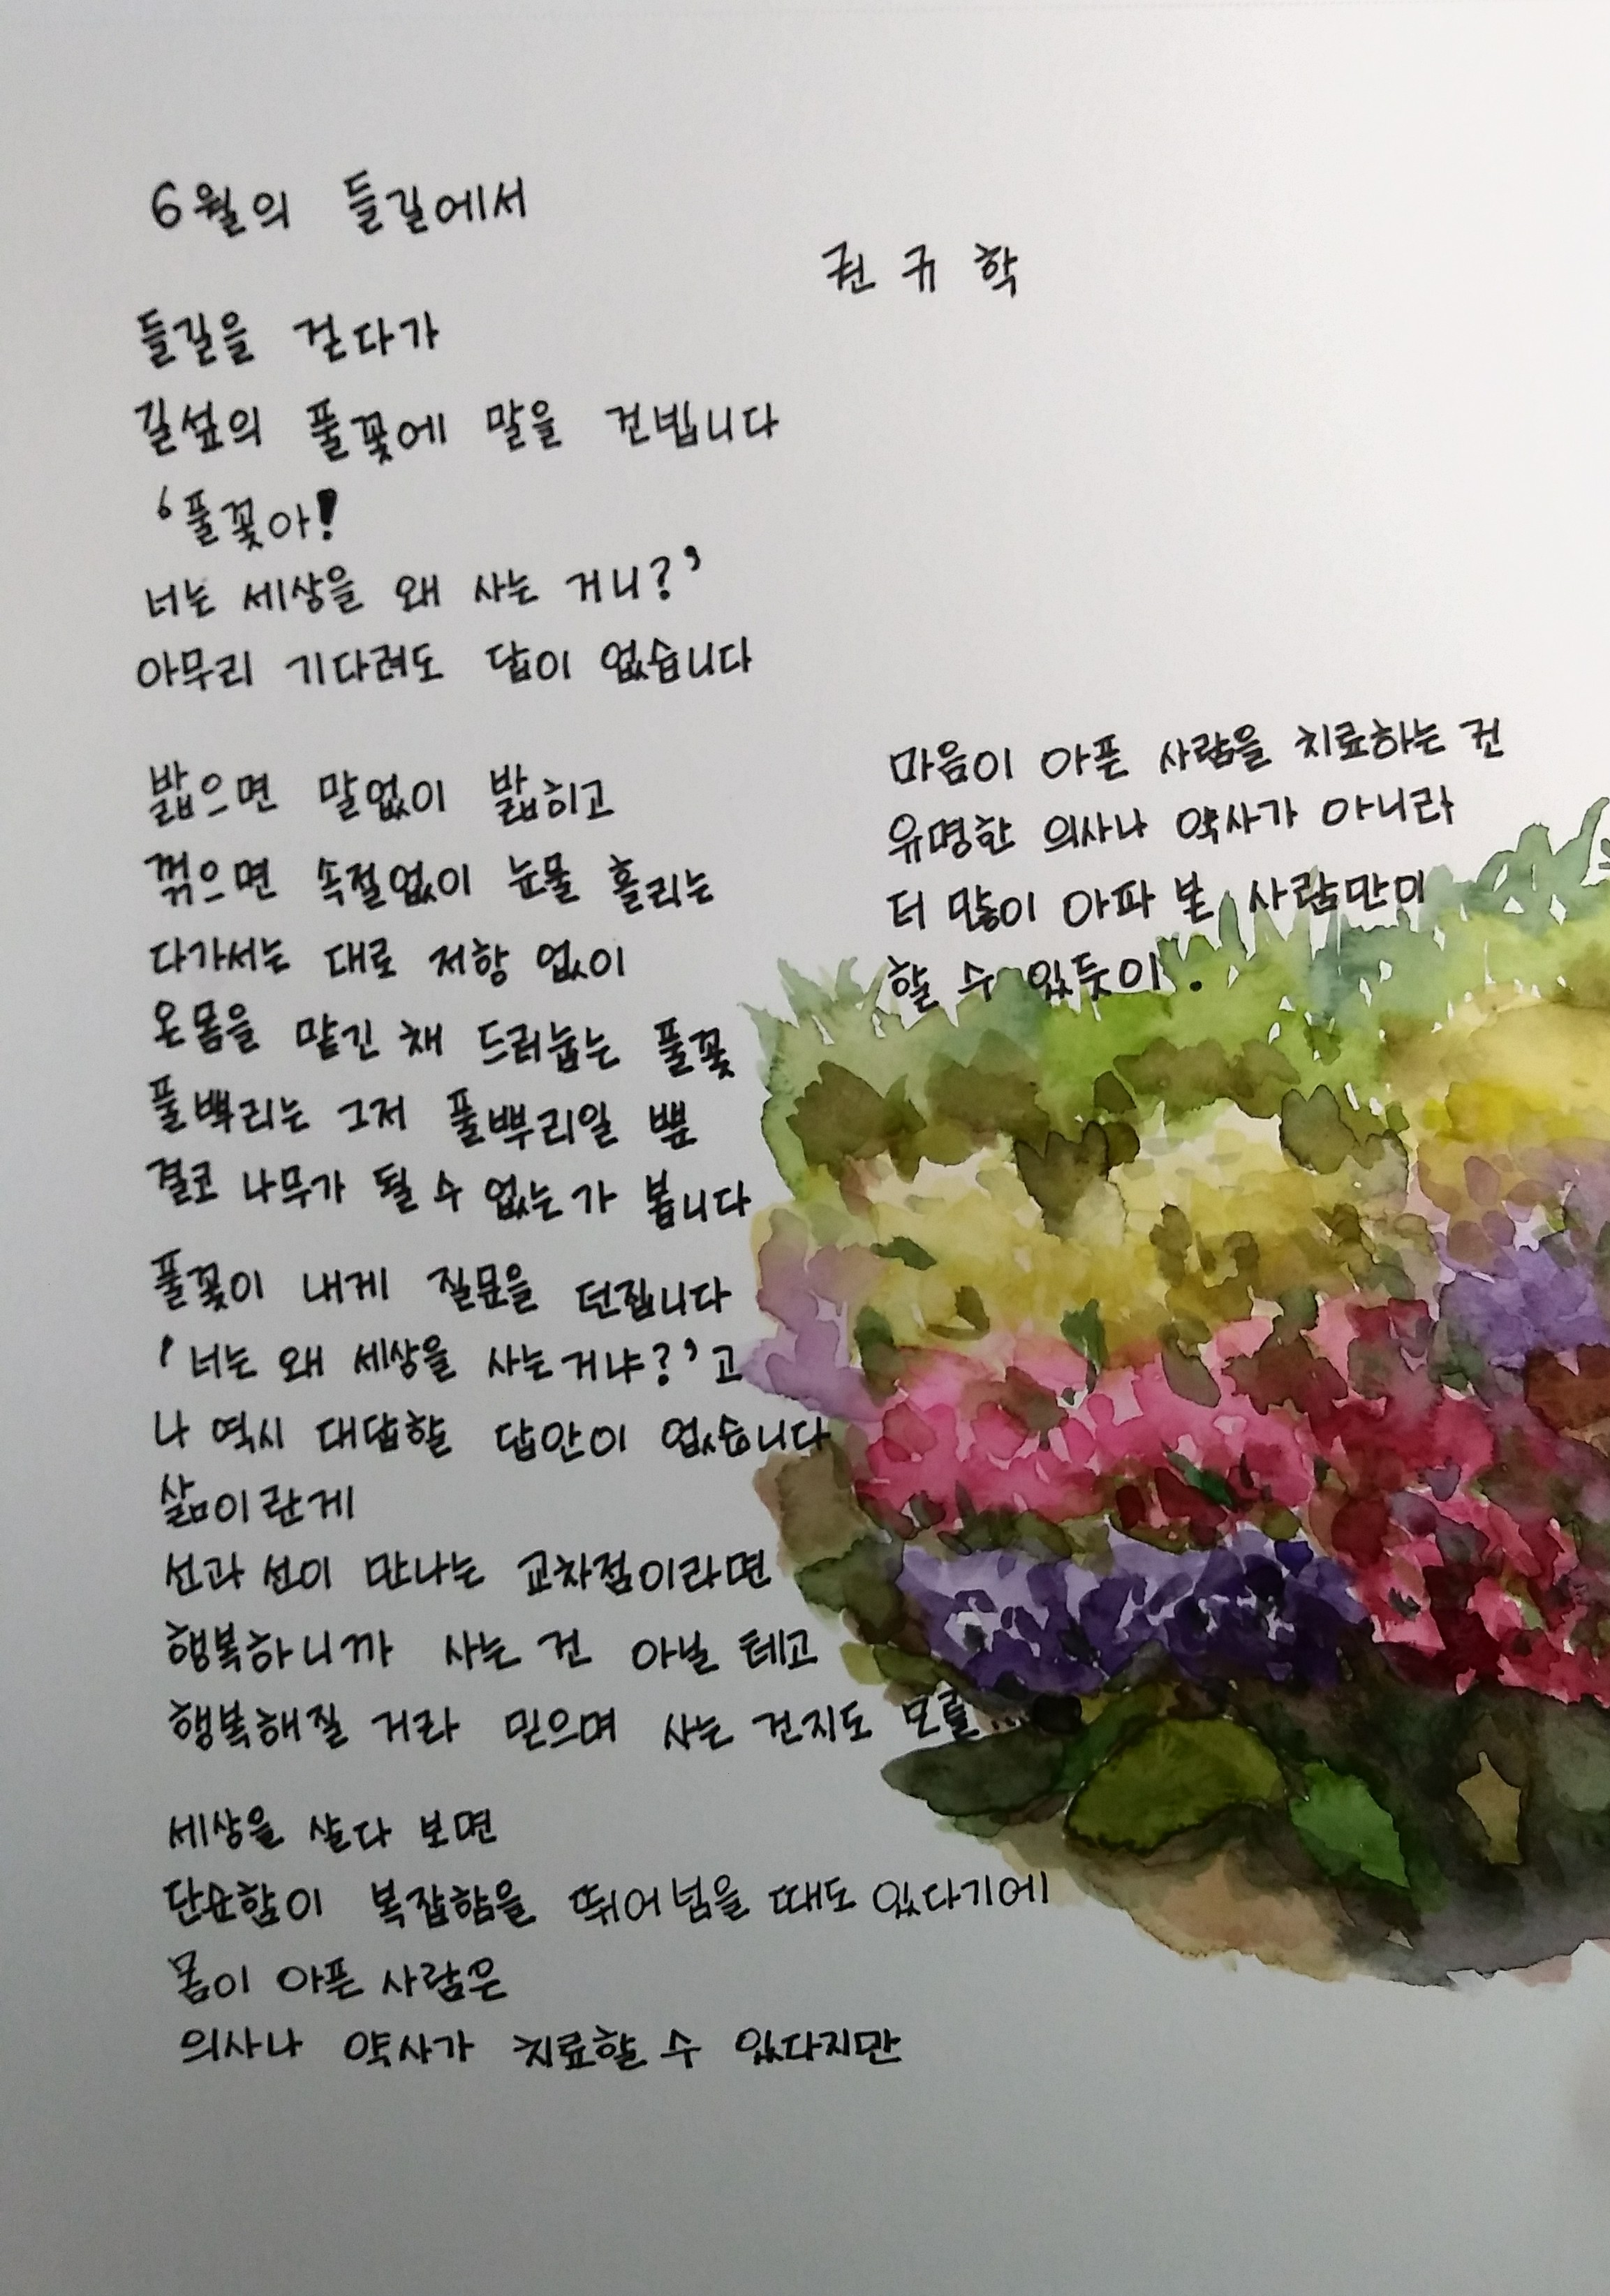 6월의 들길에서
권 규 학
들길을 걷다가
길섶의 풀꽃에 말을 건넵니다
‘풀꽃아!
너는 세상을 왜 사는 거니?’
아무리 기다려도 답이 없습니다
밟으면 말없이 밟히고
꺾으면 속절없이 눈물 흘리는
다가서는 대로 저항 없이
온몸을 맡긴 채 드러눕는 풀꽃
풀뿌리는 그저 풀뿌리일 뿐
결코 나무가 될 수 없는가 봅니다
풀꽃이 내게 질문을 던집니다
‘너는 왜 세상을 사는거냐?’고
나 역시 대답할 답안이 없습니다
삶이란게
선과 선이 만나는 교차점이라면
행복하니까 사는 건 아닐 테고
행복해질 거라 믿으며 사는 건지도 모를...
세상을 살다 보면
단순함이 복잡함을 뛰어넘을 때도 있다기에
몸이 아픈 사람은
의사나 약사가 치료할 수 있다지만
마음이 아픈 사람을 치료하는 건
유명한 의사나 약사가 아니라
더 많이 아파 본 사람만이
할 수 있듯이.